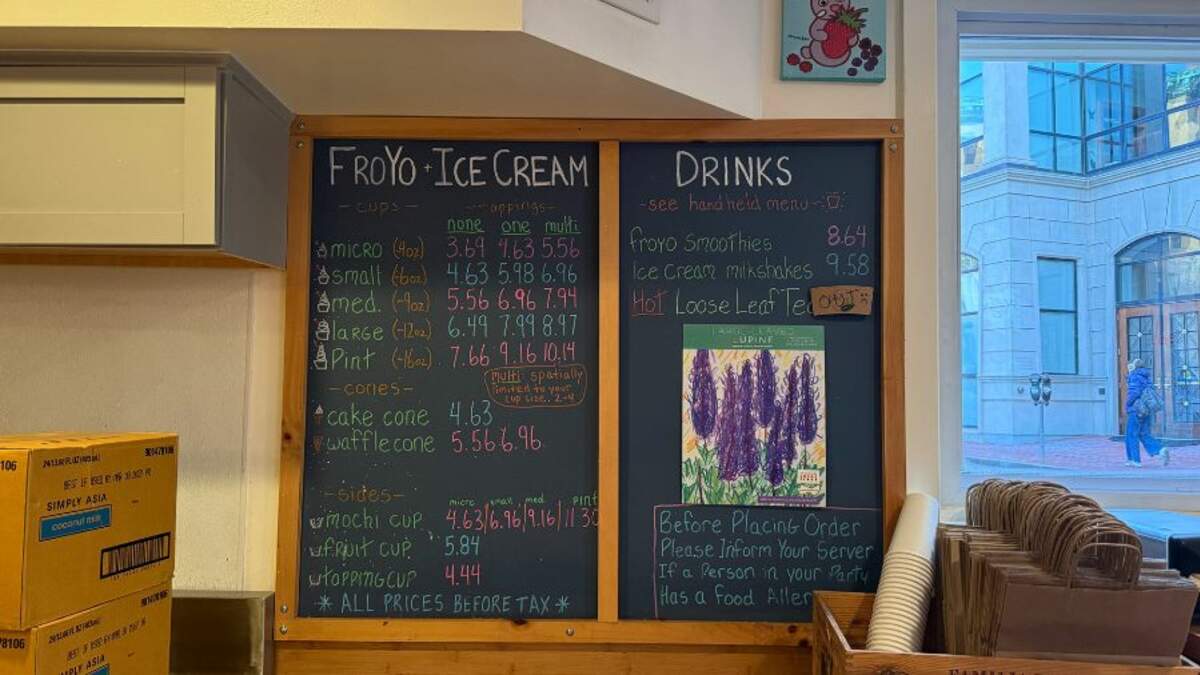 FROYO + ICE CREAM
-cups- -toppings-
none one multi
micro (4oz) 3.69 4.63 5.56
small (~6oz) 4.63 5.98 6.96
med. (~9oz) 5.56 6.96 7.94
large (~12oz) 6.49 7.99 8.97
Pint (~16oz) 7.66 9.16 10.14
multi: spatially
limited to your
cup size.. 2-4
-cones-
cake cone 4.63
waffle cone 5.56 6.96
-sides-
micro small med. pint
mochi cup 4.63/6.96/9.16/11.30
fruit cup 5.84
topping cup 4.44
* ALL PRICES BEFORE TAX *
DRINKS
-see handheld menu-
froyo smoothies 8.64
Ice Cream milkshakes 9.58
Hot Loose Leaf Tea
OUT :(
LUPINE
Before Placing Order
Please Inform Your Server
If a Person in your Party
Has a Food Aller
106
24/13.66 FL OZ (403mL)
901478106
SIMPLY ASIA
coconut milk
78106
901478106
SIMPLY ASIA